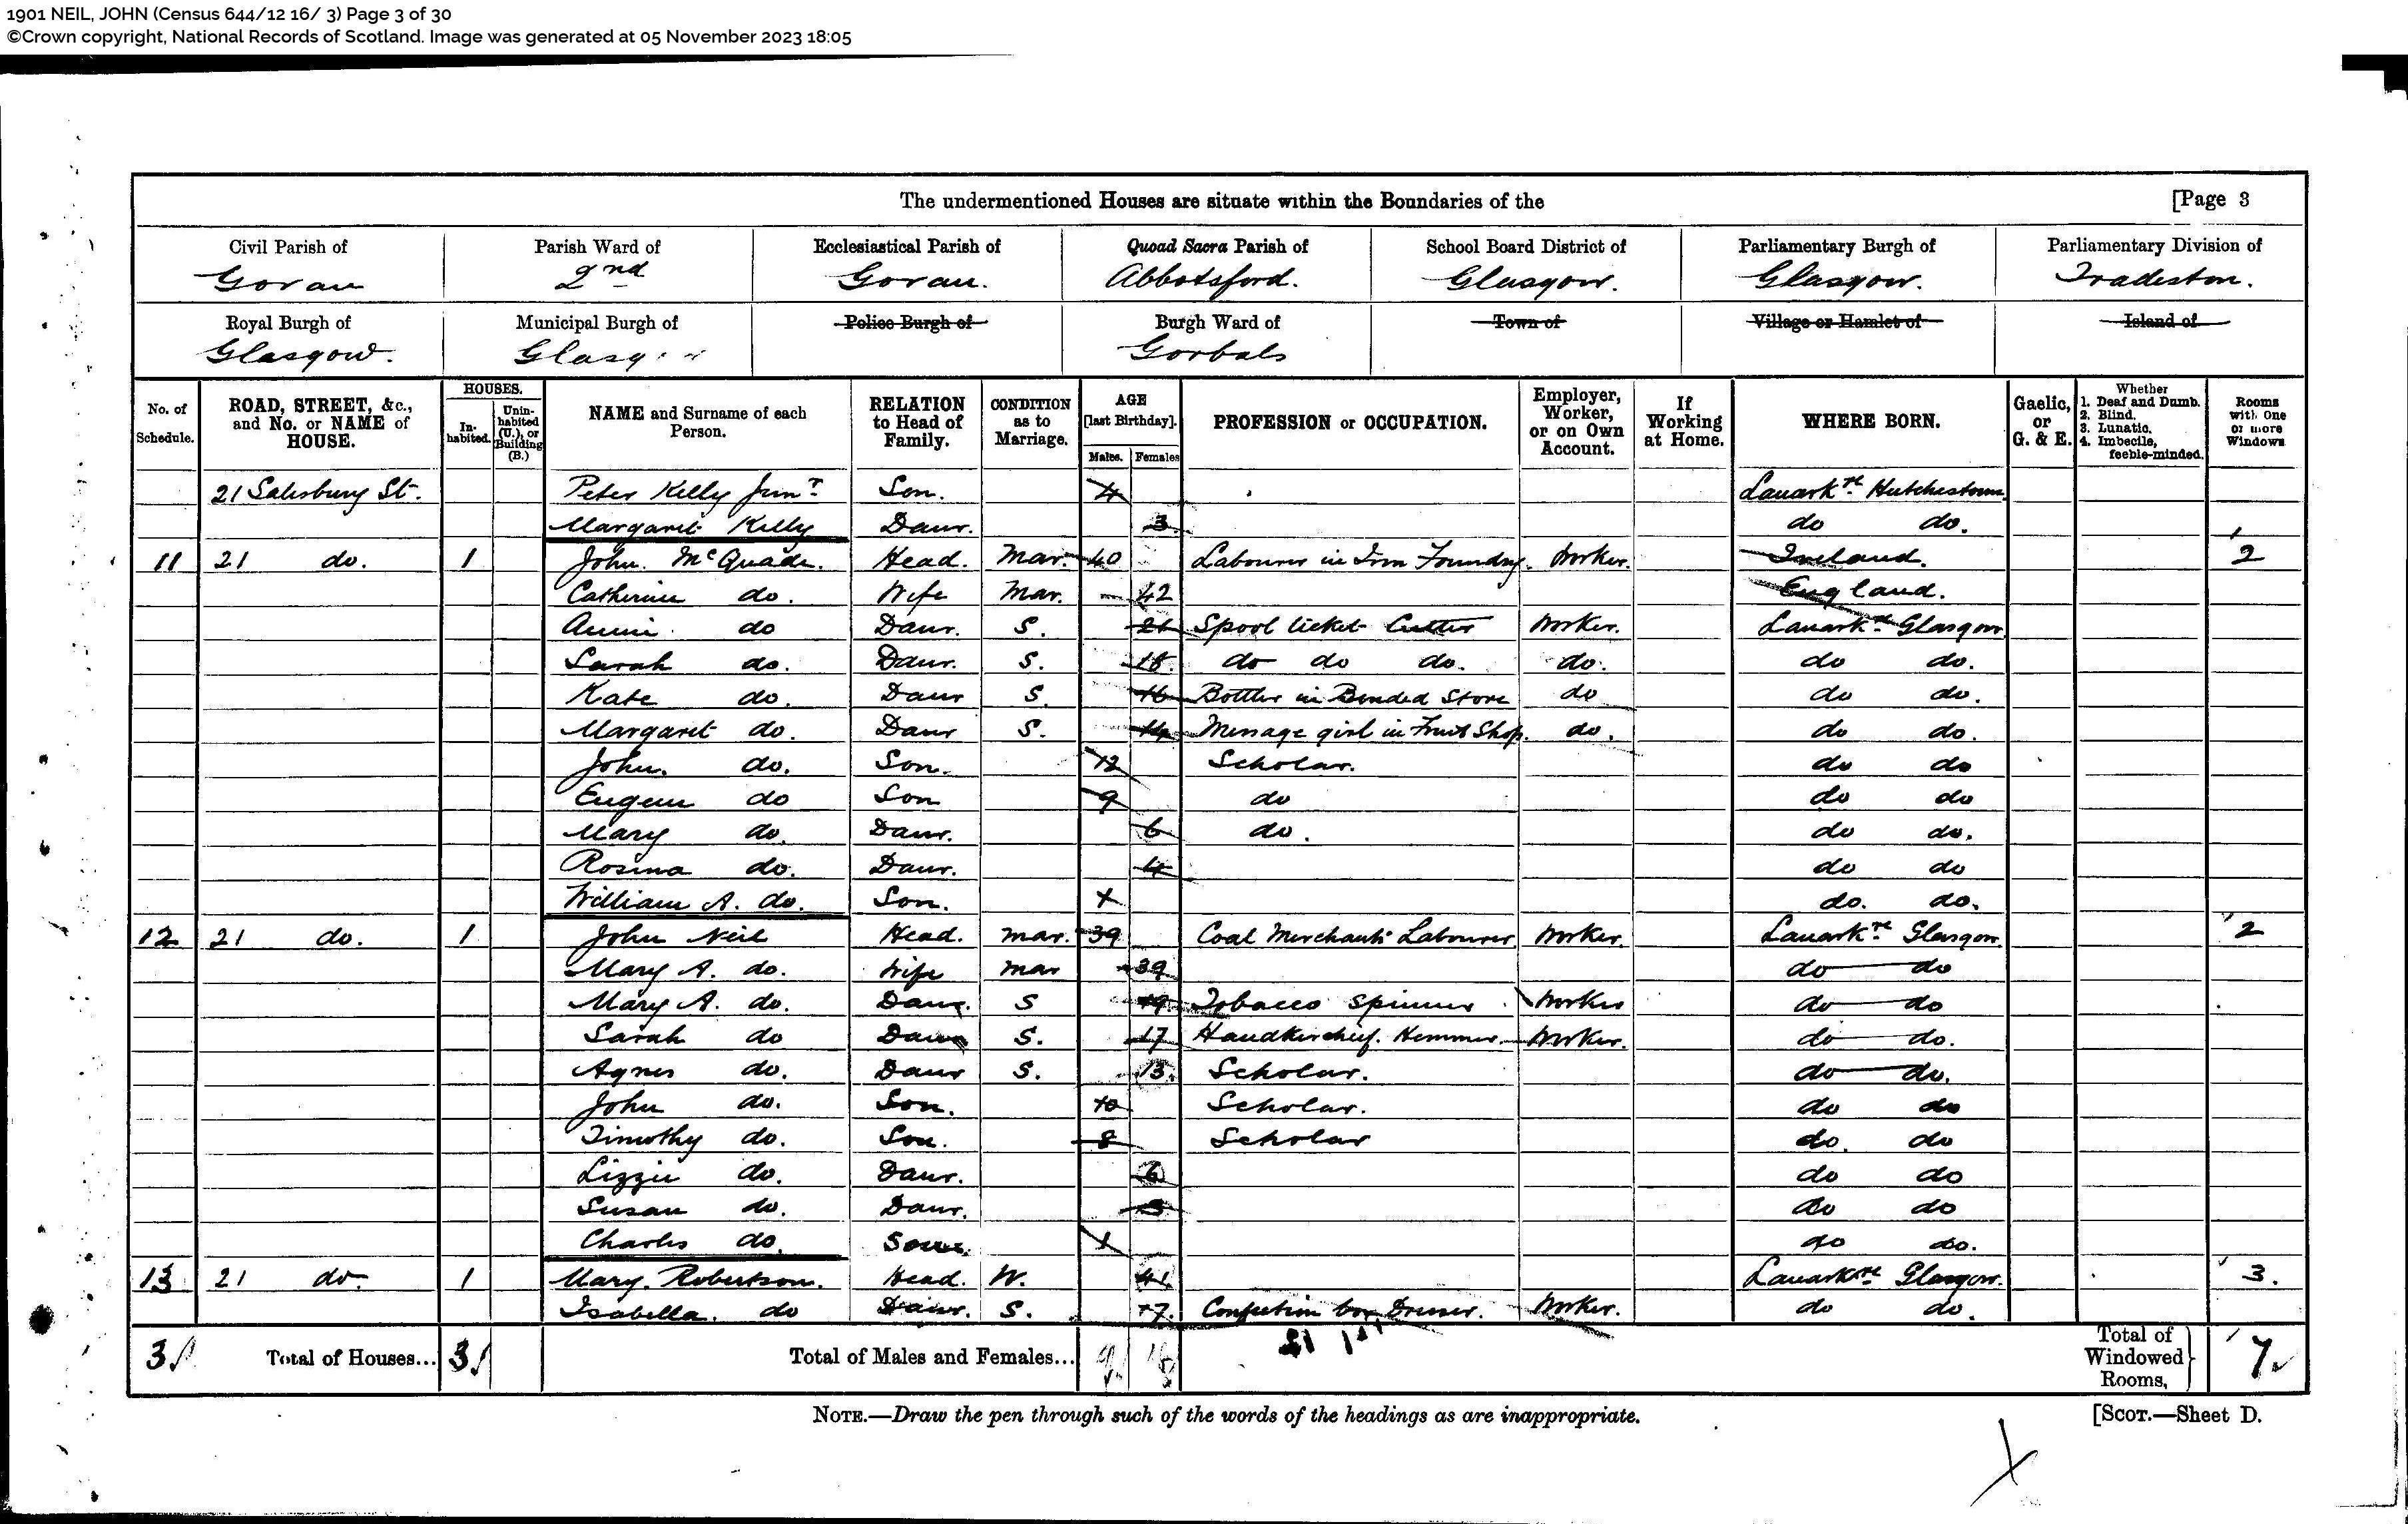 1901 NEIL, JOHN (Census 644/12 16/ 3) Page 3 of 30
©Crown copyright, National Records of Scotland. Image was generated at 05 November 2023 18:05
The undermentioned Houses are situate within the Boundaries of the [Page 3
Civil Parish of Parish Ward of Ecclesiastical Parish of Quoad Sacra Parish of School Board District of Parliamentary Burgh of Parliamentary Division of
Govan 2nd Govan. Abbotsford. Glasgow. Glasgow. Tradeston.
Royal Burgh of Municipal Burgh of Police Burgh of Burgh Ward of Town of Village or Hamlet of Island of
Glasgow. Glasgow Gorbals
No. of Schedule. ROAD, STREET, &c., and No. or NAME of HOUSE. HOUSES. In-habited. Unin-habited (U.), or Building (B.) NAME and Surname of each Person. RELATION to Head of Family. CONDITION as to Marriage. AGE [last Birthday]. Males. Females PROFESSION or OCCUPATION. Employer, Worker, or on Own Account. If Working at Home. WHERE BORN. Gaelic, or G. & E. Whether 1. Deaf and Dumb. 2. Blind. 3. Lunatic. 4. Imbecile, feeble-minded. Rooms with One or more Windows
21 Salisbury St. Peter Kelly Junr Son. 4 Lanarkre Hutchestown
Margaret Kelly Daur. 3 do do.
11 21 do. 1 John McQuade. Head. Mar. 40 Labourer in Iron Foundry. Worker. Ireland. 2
Catherine do. Wife Mar. 42 England.
Annie do Daur. S. 21 Spool ticket Cutter Worker. Lanarkre Glasgow
Sarah do. Daur. S. 18 do do do. do. do do.
Kate do. Daur S. 16 Bottler in Bonded Store do do do.
Margaret do. Daur S. 14 Message girl in Fruit Shop. do. do do.
John. do. Son. 12 Scholar. do do
Eugene do Son 9 do do do
Mary do. Daur. 6 do. do do.
Rosina do. Daur. 4 do do
William A. do. Son. do. do.
12 21 do. 1 John Neil Head. Mar. 39 Coal Merchants Labourer Worker. Lanarkre Glasgow 2
Mary A. do. Wife Mar 39 do do
Mary A. do. Daur. S 19 Tobacco Spinner Worker do do
Sarah do Daur S. 17 Handkerchief. Hemmer. Worker. do do.
Agnes do. Daur S. 13. Scholar. do do.
John do. Son. 10 Scholar. do do
Timothy do. Son. 8 Scholar do. do
Lizzie do. Daur. 6 do do
Susan do. Daur. 3 do do
Charles do. Son. 1 do do.
13 21 do. 1 Mary. Robertson. Head. W. 41 Lanarkre Glasgow. 3.
Isabella. do Daur. S. 17. Confection box Dresser. Worker. do do.
3 Total of Houses... 3 Total of Males and Females... 9 18 Total of Windowed Rooms, 7
NOTE.—Draw the pen through such of the words of the headings as are inappropriate. [SCOT.—Sheet D.